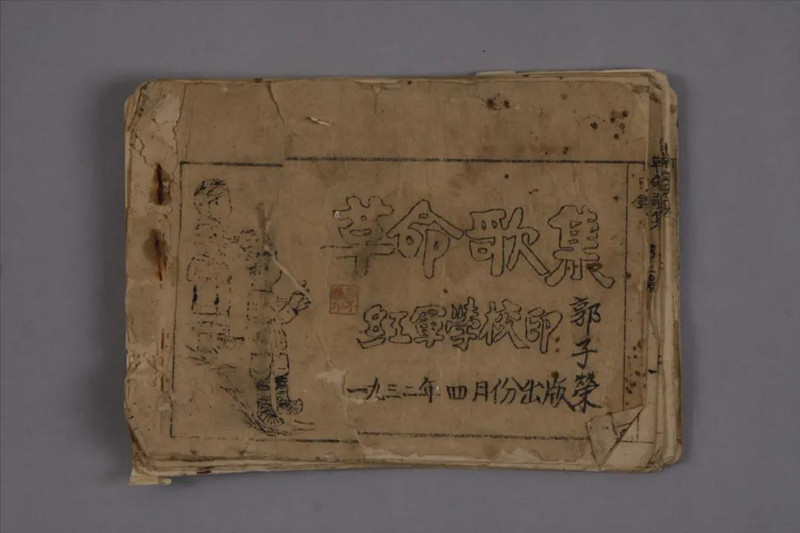 革命歌集
红軍學校印
郭子榮
一九三二年四月份出版